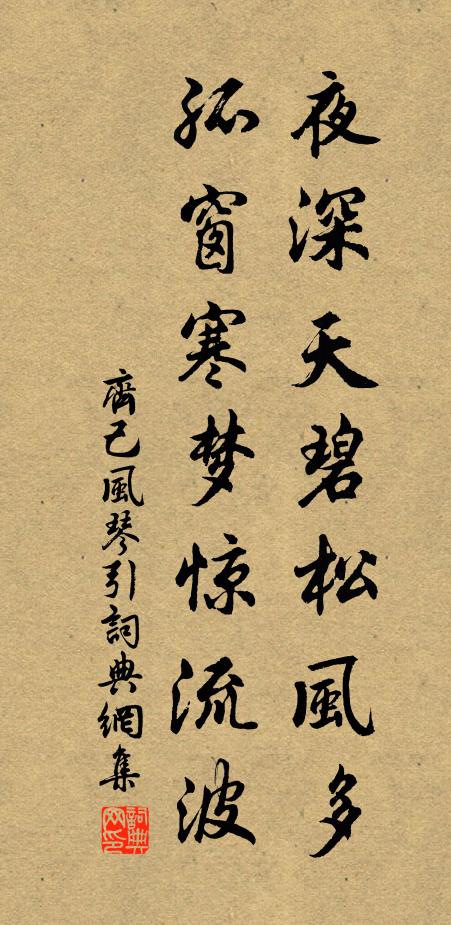 夜深天碧松風多
孤窗寒梦惊流波
齊己風琴引詞典網集
詞典
网印